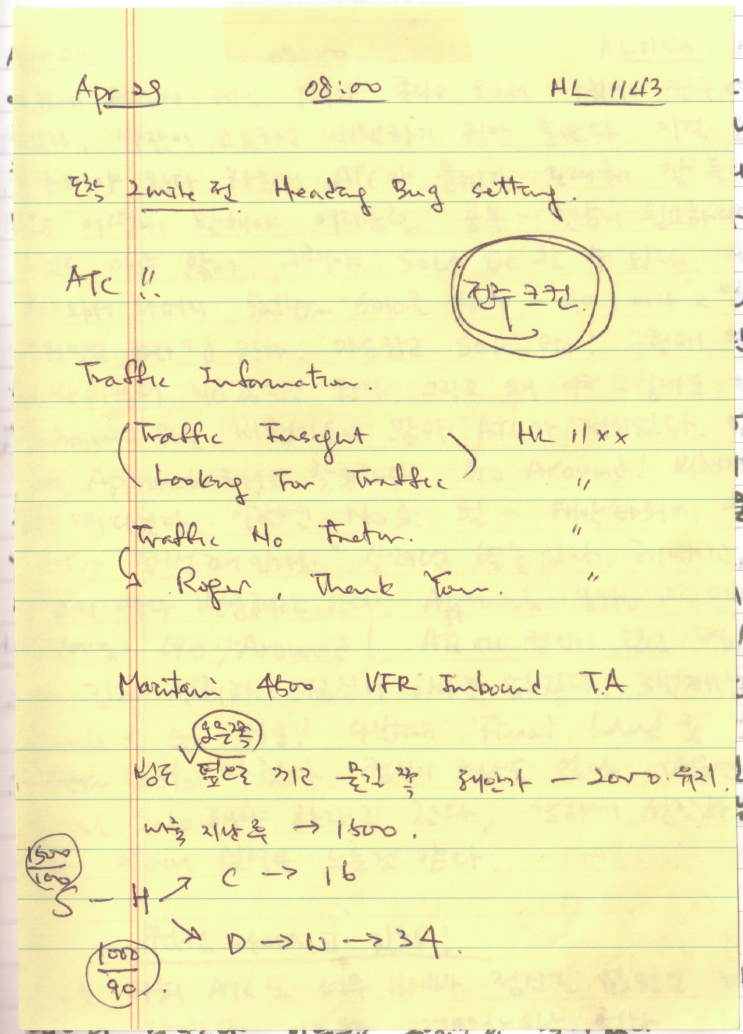 Apr 29 08:00 HL 1143
도착 2mile 전 Heading Bug setting.
ATC !!
전주 크컨.
Traffic Information.
Traffic Insight HL 11xx
Looking For Traffic "
Traffic No Factor. "
Roger, Thank You. "
Maintain 4500 VFR Inbound T.A
오른쪽
옆으로 끼고 물길 쪽 해안가 - 2000 유지.
지난 후 → 1500.
1500
100
S - H → C → 16
→ D → W → 34
1000
90